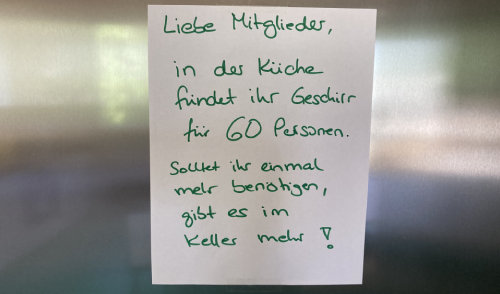 Liebe Mitglieder,
in der Küche
findet ihr Geschirr
für 60 Personen.
Solltet ihr einmal
mehr benötigen,
gibt es im
Keller mehr!